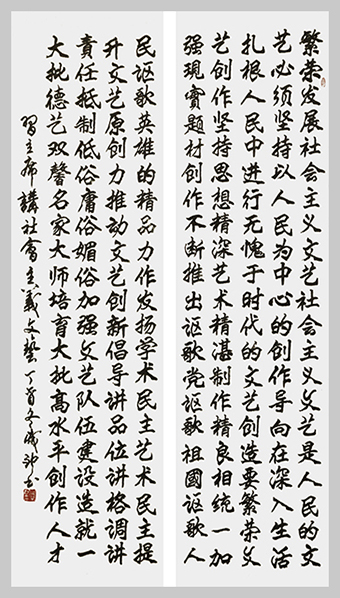 繁荣发展社会主义文艺社会主义文艺是人民的文
艺必须坚持以人民为中心的创作导向在深入生活
扎根人民中进行无愧于时代的文艺创造要繁荣文
艺创作坚持思想精深艺术精湛制作精良相统一加
强現實题材创作不断推出讴歌党讴歌祖國讴歌人
民讴歌英雄的精品力作发扬学术民主艺术民主提
升文艺原创力推动文艺创新倡导讲品位讲格调讲
責任抵制低俗庸俗媚俗加强文艺队伍建设造就一
大批德艺双馨名家大师培育大批高水平创作人才
習主席講社會主義文藝丁酉冬